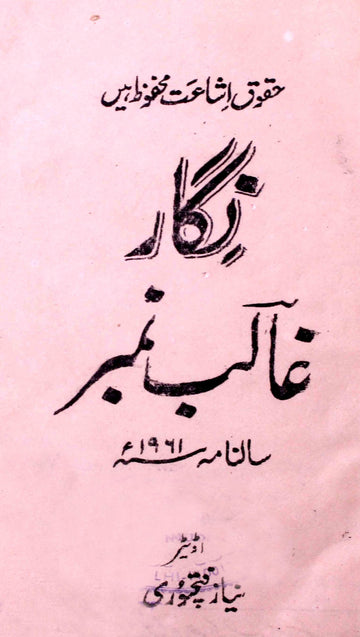 حقوق اشاعت محفوظ ہیں
نگار
غالب نمبر
سالنامہ ۱۹۶۱ء
اڈیٹر
نیاز فتحپوری